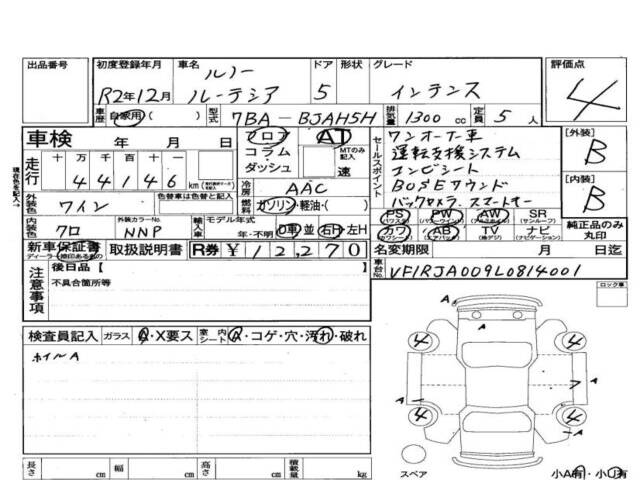 出品番号 初度登録年月 車名 ドア 形状 グレード 評価点
R2年12月 ルノー ルーテシア 5 インテンス 4
車歴 自家用( ) 型式 7BA-BJAH5H 排気量 1300 cc 定員 5 人
車検 年 月 日 フロア AT
コラム MTのみ記入
ダッシュ 速
走行 十 万 千 百 十 一
44146 km
冷房 AAC
外装色 ワイン 色替車は色替と記入
燃料 ガソリン・軽油・( )
内装色 クロ 外装カラーNo. NNP 輸入車 モデル年式 年・不明 D車 並 右H 左H
セールスポイント
ワンオーナー車
運転支援システム
コンビシート
BOSEサウンド
バックカメラ、スマートキー
[外装] B
[内装] B
PS (パワステ) PW (パワーウィンドウ) AW (アルミホイル) SR (サンルーフ)
カワ (カワシート) AB (エアバッグ) TV (地デジ) ナビ (ナビゲーション)
純正品のみ丸印
新車保証書 取扱説明書 R券 ¥12,270
名変期限 月 日迄
車台No. VF1RJA009L0814001
注意事項 後日品【 】
不具合箇所等
検査員記入 ガラス A・X要ス 室内シート A・コゲ・穴・汚れ・破れ
ホイルA
ロック車
A
4 4
A A
4 4
A
スペア
小A有・小U有
長さ cm 幅 cm 高さ cm 積載量 kg
現在色を記入→